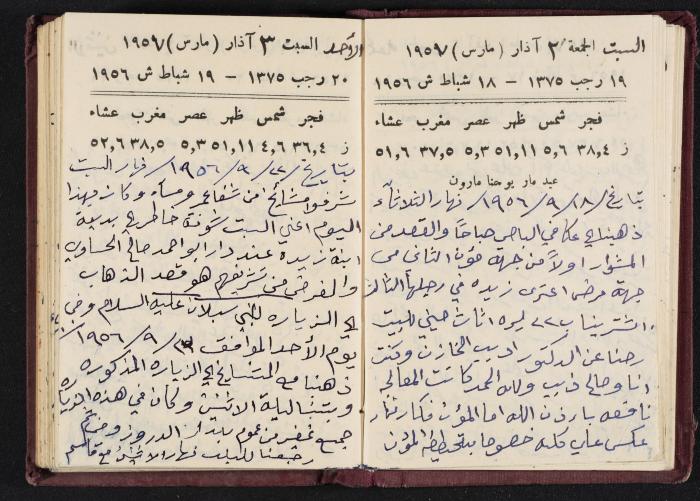 السبت الجمعة ٢ آذار (مارس) ١٩٥٦
١٩ رجب ١٣٧٥ – ١٨ شباط ش ١٩٥٦
فجر شمس ظهر عصر مغرب عشاء
ز ٣٨,٤ ٥,٦ ٥١,١١ ٥,٣ ٣٧,٥ ٥١,٦
عيد مار يوحنا مارون
بتاريخ /١٨/ ٩ /١٩٥٦/ نهار الثلاثاء
ذهبنا الى عكا في الباص صباحاً والقصد من
المشوار اولاً من جهة مؤن الثاني من
جهة مرض اعترى زيده في رجليها الثالث
اشترينا ب٢٢ ليره اثاث صيني للبيت
رحنا عن الدكتور اديب الخازن وكنت
انا وصالح ذيب ولله الحمد كانت المعالجه
نافعه باذن الله اما المؤن فكان نهار
عكس علي كله خصوصا
الأحد السبت ٣ آذار (مارس) ١٩٥٦
٢٠ رجب ١٣٧٥ – ١٩ شباط ش ١٩٥٦
فجر شمس ظهر عصر مغرب عشاء
ز ٣٦,٤ ٤,٦ ٥١,١١ ٥,٣ ٣٨,٥ ٥٢,٦
بتاريخ /٢٢/ ٩ /١٩٥٦/ نهار السبت
شرفوا مشائخ من شفاعمر ومساء وكان بهذا
اليوم اعني السبت شوفة خاطر الى بديعة
ابنة زيده عند دار ابو احمد صالح الحساوي
والغرض من تشريفهم هو قصد الذهاب
الى الزياره للنبي سبلان عليه السلام وفي
يوم الأحد الموافق ٢٣/ ٩ /١٩٥٦
ذهبنا مع المشايخ الى الزياره المذكوره
وبتنا ليلة الاثنين وكان في هذه
جمع غفير من عموم بلدان الدروز
رجعنا للبلد نهار الاثنين مع قاسم